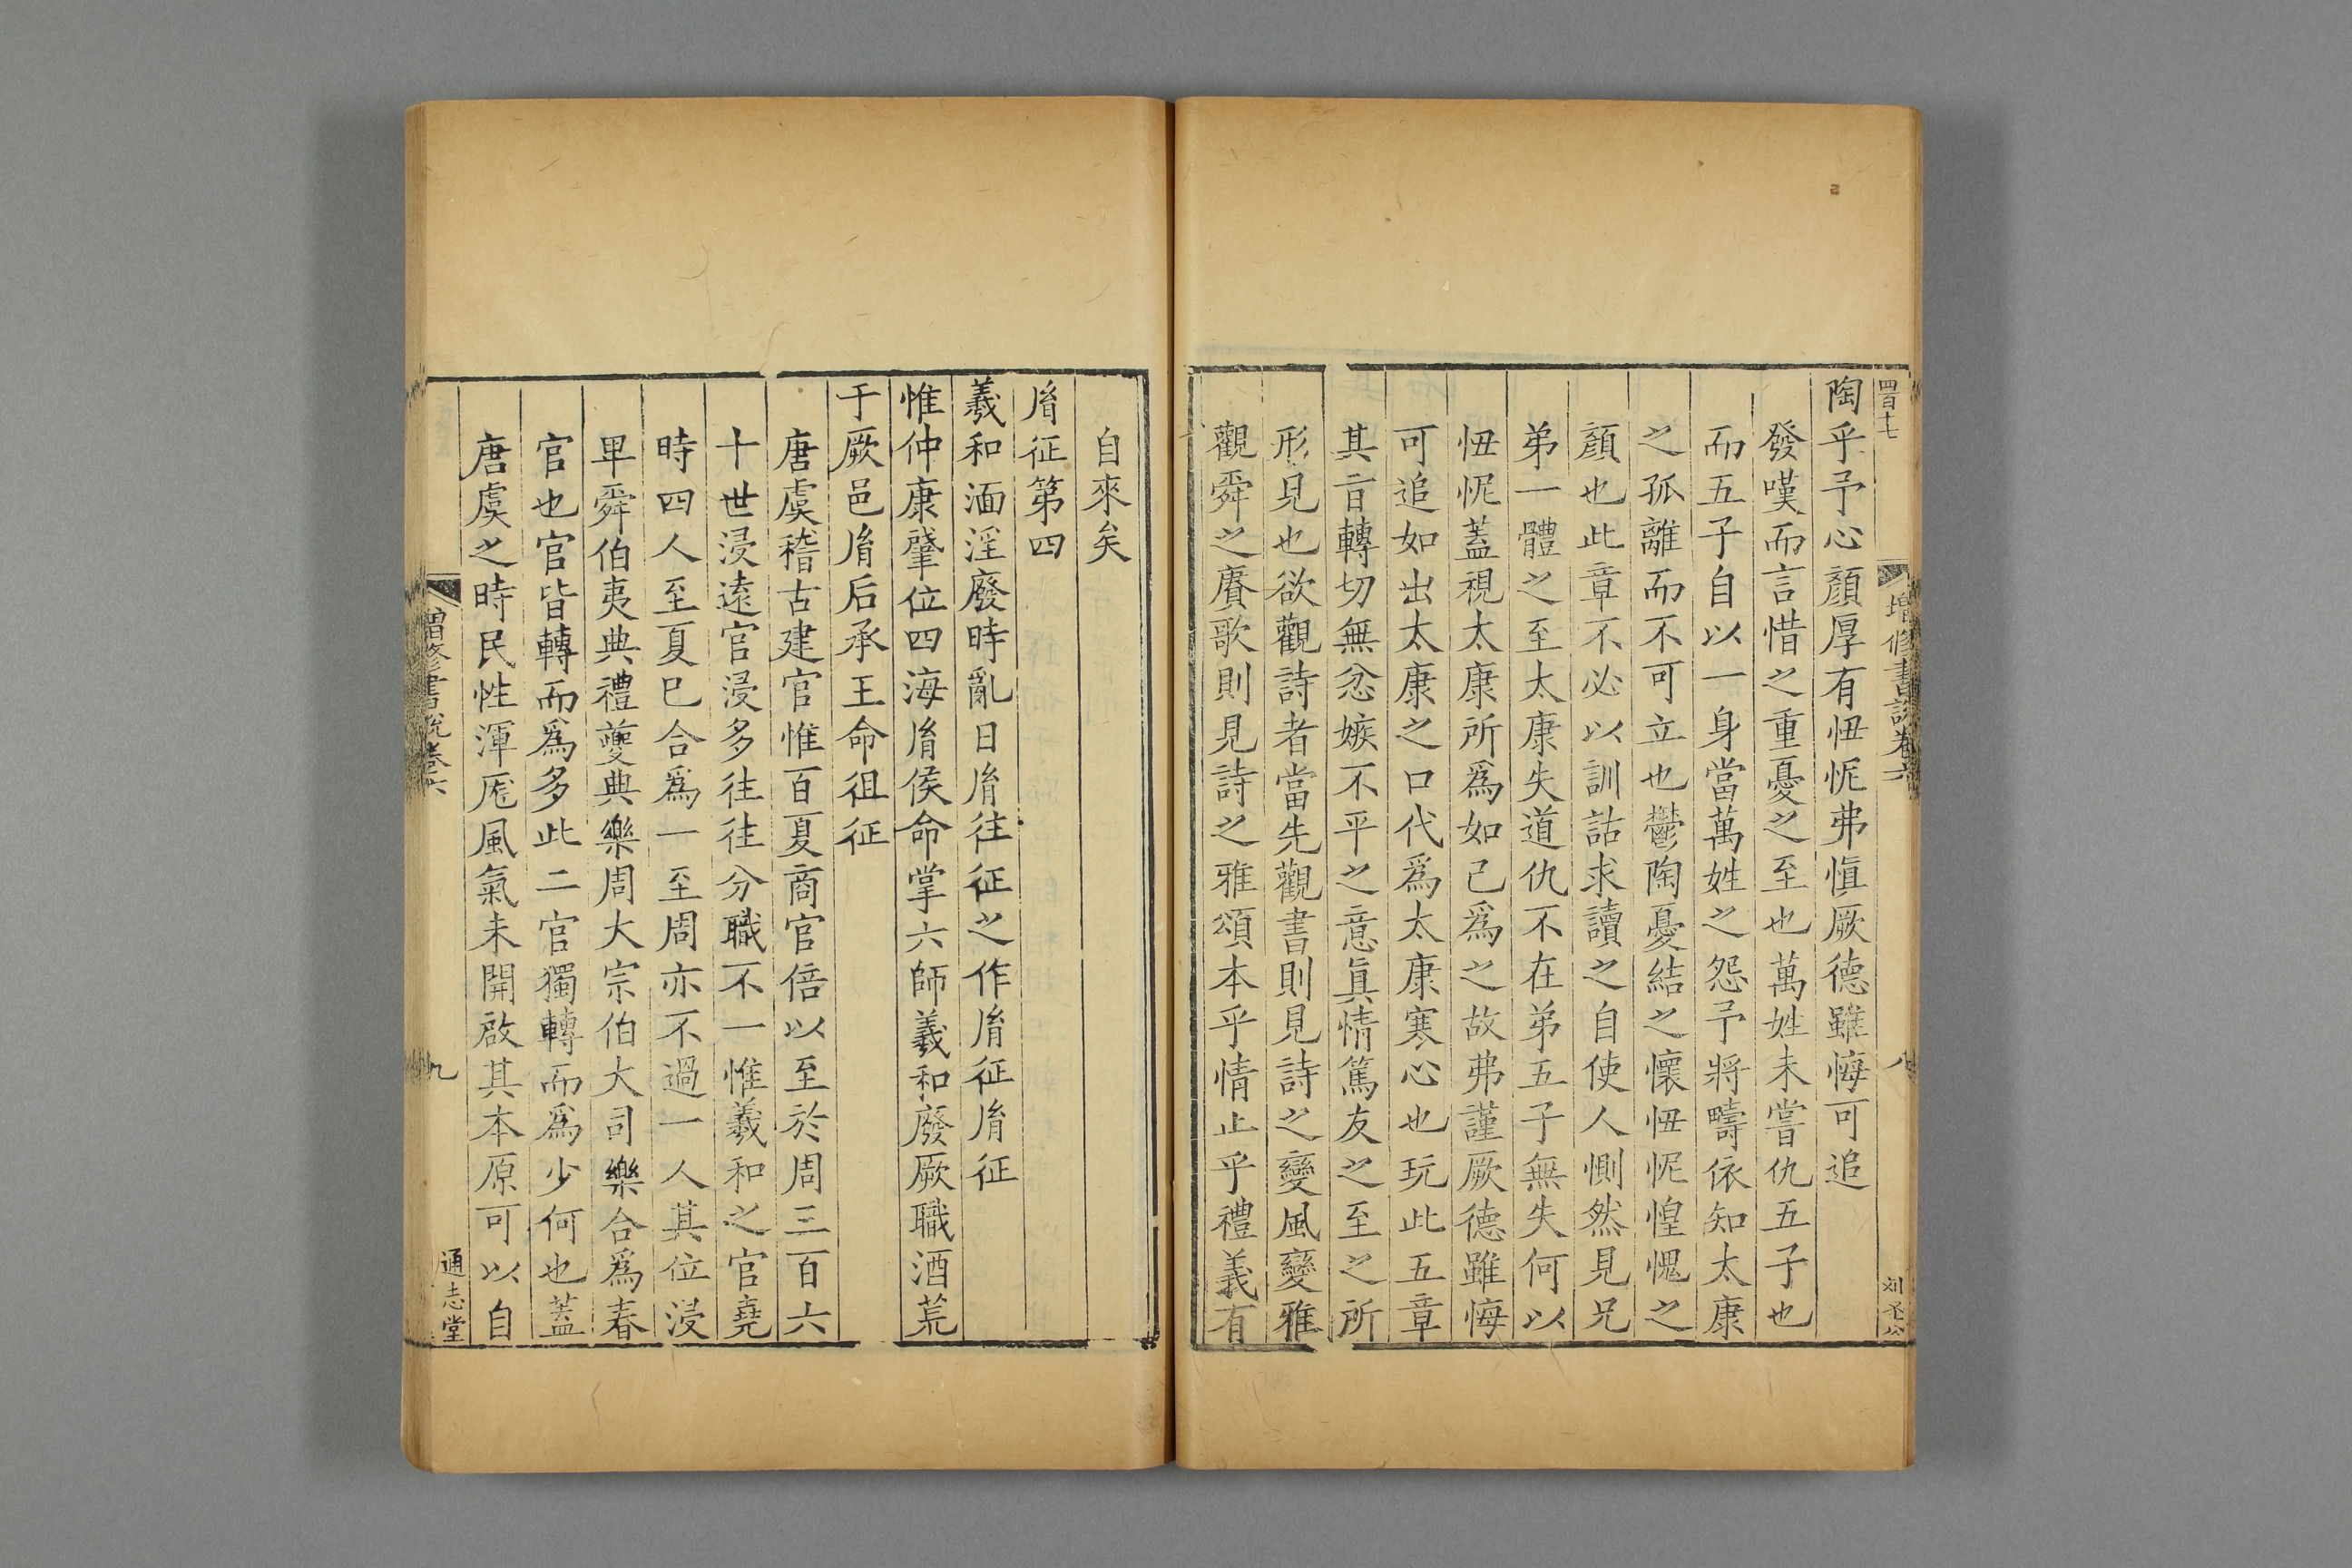 四百十七
增修書說卷六
八
陶乎予心顏厚有忸怩弗愼厥德雖悔可追
發嘆而言惜之重憂之至也萬姓未嘗仇五子也
而五子自以一身當萬姓之怨予將疇依知太康
之孤離而不可立也鬱陶憂結之懷忸怩惶愧之
顏也此章不必以訓詁求讀之自使人惻然見兄
弟一體之至太康失道仇不在弟五子無失何以
忸怩蓋視太康所爲如己爲之故弗謹厥德雖悔
可追如出太康之口代爲太康寒心也玩此五章
其音轉切無忿嫉不平之意眞情篤友之至之所
形見也欲觀詩者當先觀書則見詩之變風變雅
觀舜之賡歌則見詩之雅頌本乎情止乎禮義有
自來矣
胤征第四
羲和湎淫廢時亂日胤往征之作胤征胤征
惟仲康肇位四海胤侯命掌六師羲和廢厥職酒荒
于厥邑胤后承王命徂征
唐虞稽古建官惟百夏商官倍以至於周三百六
十世浸遠官浸多往往分職不一惟羲和之官堯
時四人至夏已合爲一至周亦不過一人其位浸
卑舜伯夷典禮夔典樂周大宗伯大司樂合爲春
官也官皆轉而爲多此二官獨轉而爲少何也蓋
唐虞之時民性渾厖風氣未開啟其本原可以自
增修書說卷六
九
通志堂